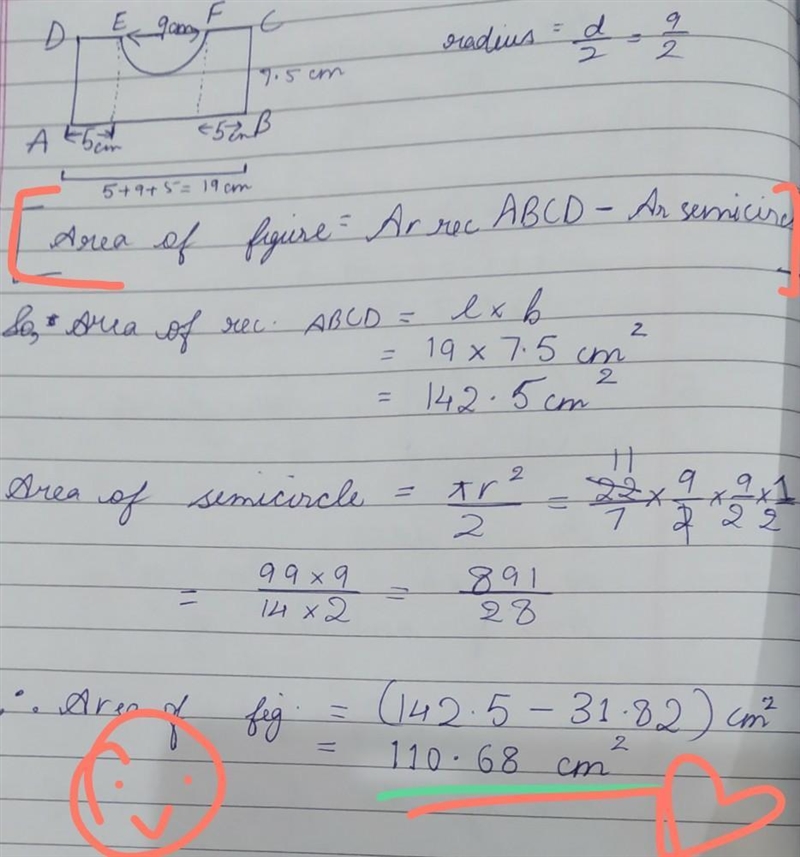 D E 9cm F C
radius = d/2 = 9/2
7.5 cm
A 5cm 5cm B
5+9+5 = 19cm
Area of figure = Ar rec ABCD - Ar semicirc
So, Area of rec. ABCD = l x b
= 19 x 7.5 cm²
= 142.5 cm²
Area of semicircle = πr²/2 = 22/7 x 9/2 x 9/2 x 1/2
11
= 99x9/14x2 = 891/28
∴ Area of fig. = (142.5 - 31.82) cm²
= 110.68 cm²